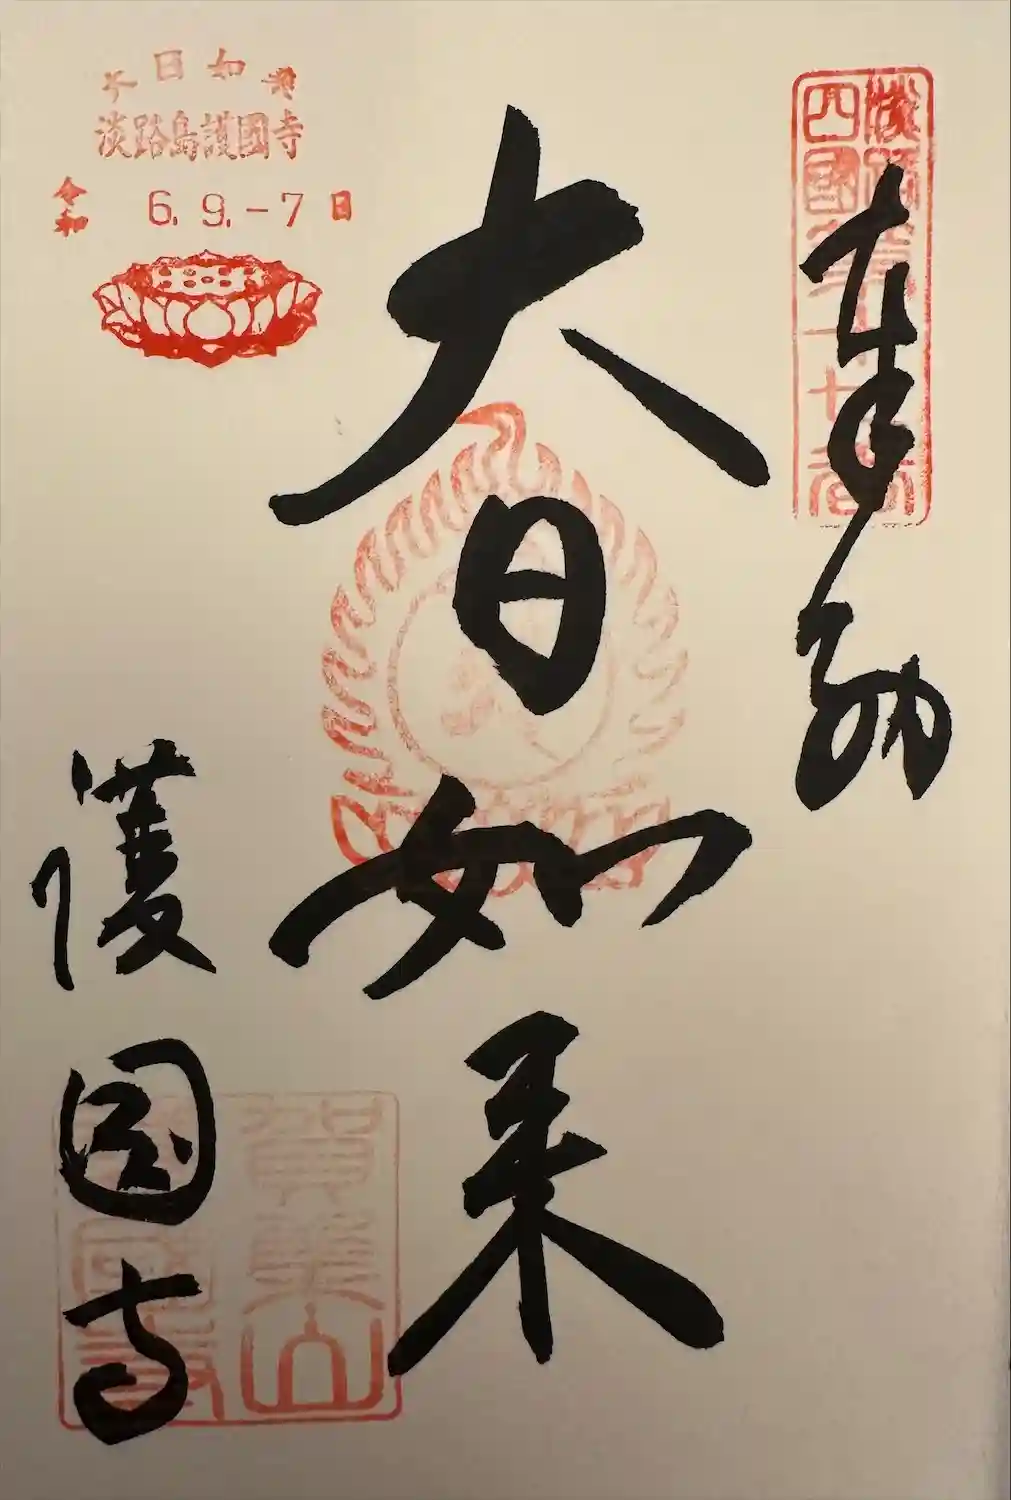 奉納
淡路第
四國第十七番
大日如来
護国寺
大日如来
淡路島護國寺
令和 6. 9. -7 日
賀集山
護國寺